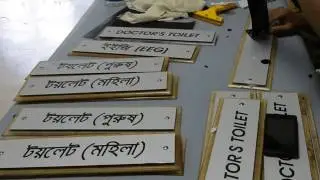 DOCTOR'S TOILET
ইইজি (EEG)
টয়লেট (পুরুষ)
টয়লেট (মহিলা)
টয়লেট (পুরুষ)
টয়লেট (মহিলা)
DOCTOR'S TOILET
TOILET